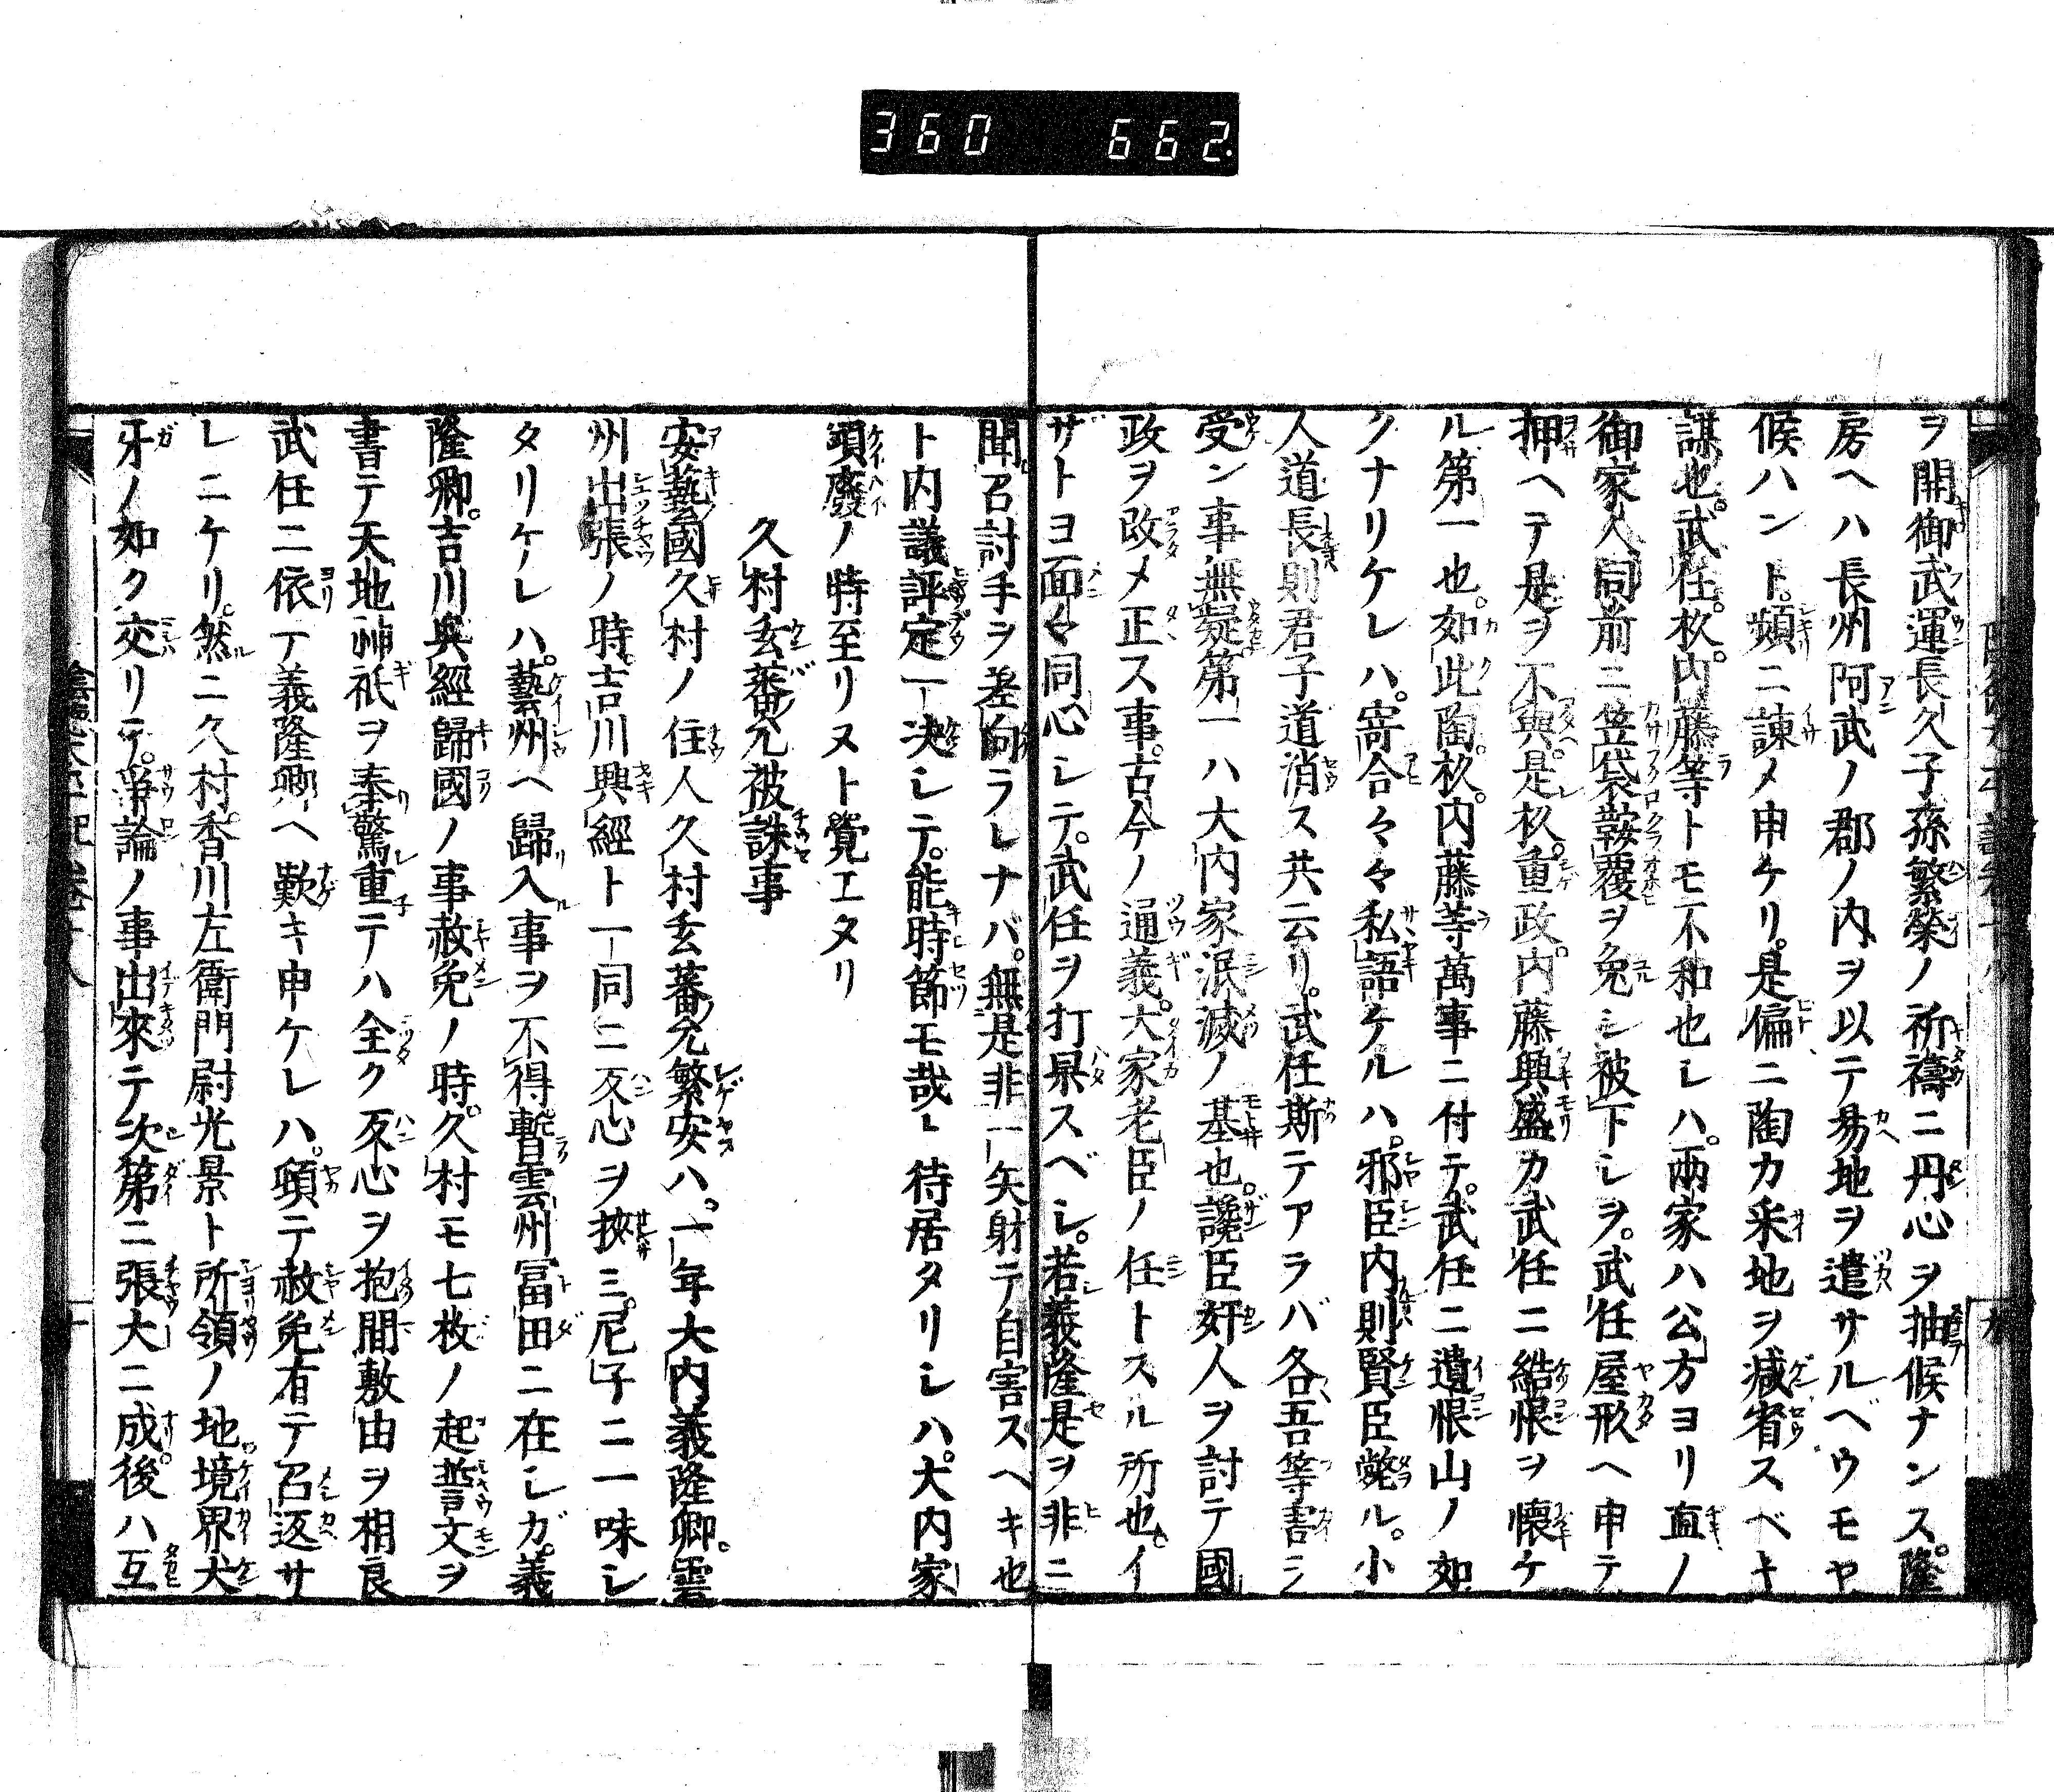 360 662.
ヲ開御武運長久子孫繁榮ノ祈禱ニ丹心ヲ抽候ナンス。隆
房ヘハ長州阿武ノ郡ノ内ヲ以テ易地ヲ遣サルベウモヤ
候ハント。頻ニ諌メ申ケリ。是偏ニ陶カ采地ヲ減省スベキ
謀也。武任。杦。内藤等トモ不和也シハ。兩家ハ公方ヨリ直ノ
御家人同前ニ笠袋鞍覆ヲ免シ被下シヲ。武任屋形ヘ申テ
押ヘテ是ヲ不與。是杦。重政。内藤興盛カ武任ニ結恨ヲ懐ケ
ル第一也。如此陶。杦。内藤等萬事ニ付テ。武任ニ遺恨山ノ如
クナリケレハ。寄合々々私語ケルハ。邪臣内則賢臣斃ル。小
人道長則君子道消ス共云リ。武任斯テアラバ各吾等害シ
受ン事無疑。第一ハ大内家泯滅ノ基也。讒臣奸人ヲ討テ國
政ヲ改メ正ス事。古今ノ通義。大家老臣ノ任トスル所也。イ
ザトヨ面々同心シテ。武任ヲ打果スベシ。若義隆是ヲ非ニ
聞召討手ヲ差向ラレナバ。無是非一矢射テ自害スヘキ也
ト内議評定一決シテ。能時節モ哉ト待居タリシハ。大内家
頃廢ノ時至リヌト覺エタリ
久村玄蕃允被誅事
安藝國久村ノ住人久村玄蕃允繁安ハ。一年大内義隆卿。雲
州出張ノ時。吉川興經ト一同ニ反心ヲ挾ミ。尼子ニ一味シ
タリケレハ。藝州ヘ歸入事ヲ不得。暫雲州冨田ニ在シガ。義
隆卿。吉川興經歸國ノ事赦免ノ時。久村モ七枚ノ起誓文ヲ
書テ天地神祇ヲ奉驚重テハ全ク反心ヲ抱間敷由ヲ相良
武任ニ依テ義隆卿ヘ歎キ申ケレハ。頓テ赦免有テ召返サ
レニケリ。然ニ久村。香川左衛門尉光景ト所領ノ地。境界犬
牙ノ如ク交リテ。爭論ノ事出來テ次第ニ張大ニ成。後ハ互